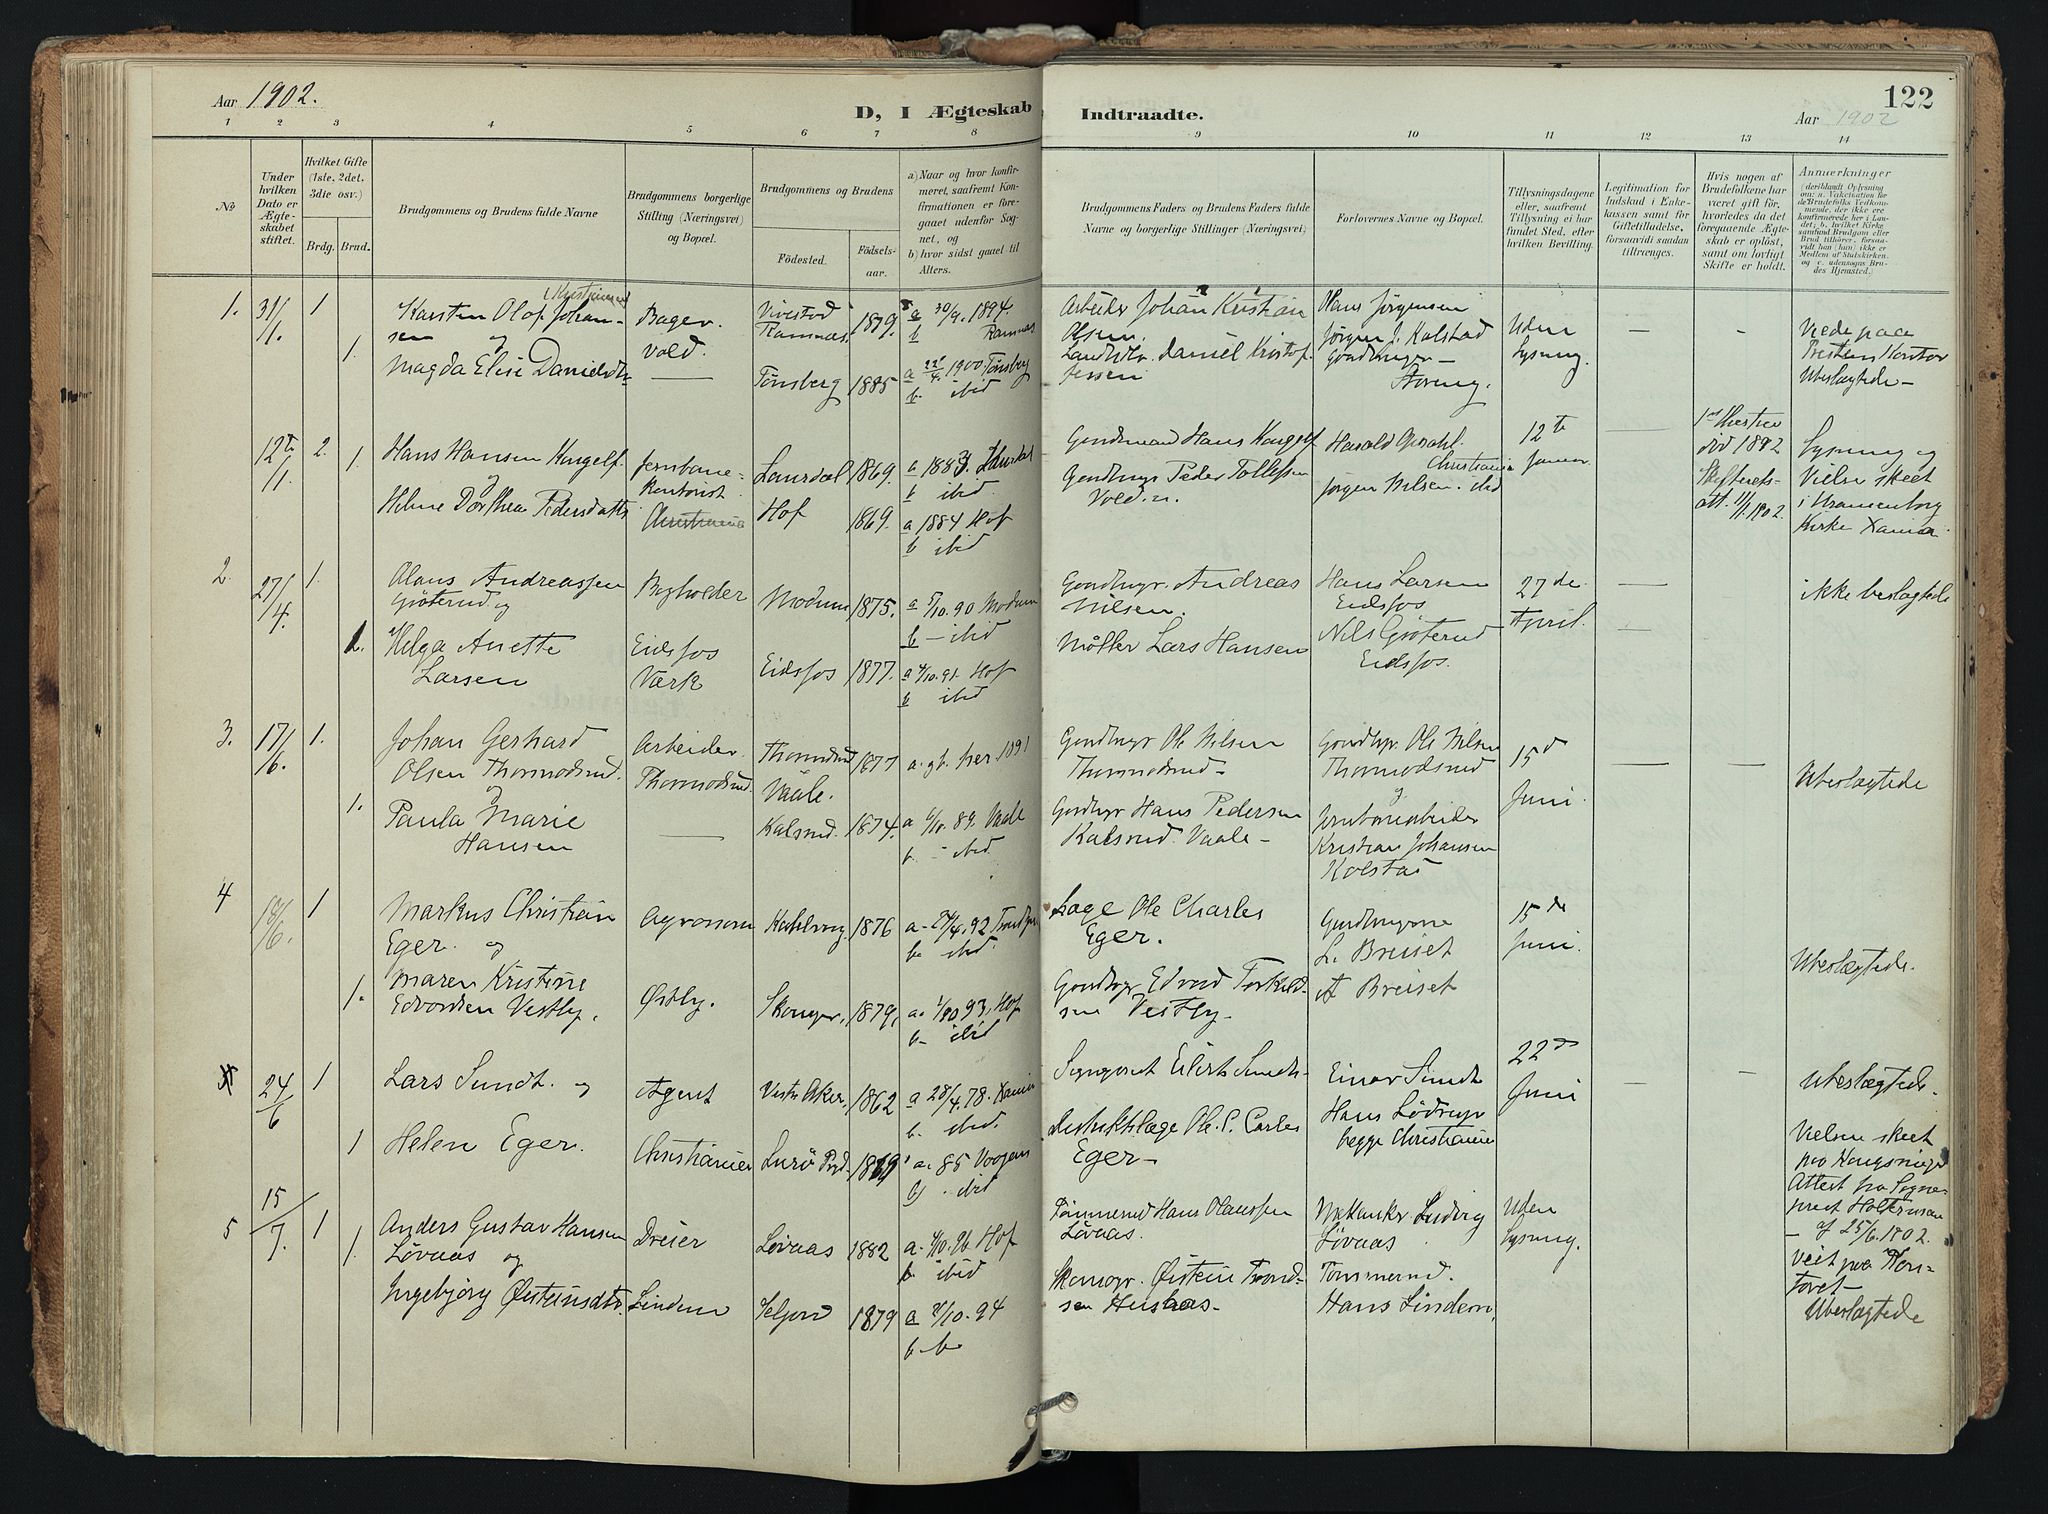 Aar 1902.
D, I Ægteskab Indtraadte.
122
Aar 1902
1 2 3 4 5 6 7 8 9 10 11 12 13 14
No
Under hvilken Dato er Ægteskabet stiftet.
Hvilket Gifte (1ste, 2det, 3die osv.)
Brdg. Brud.
Brudgommens og Brudens fulde Navne
Brudgommens borgerlige Stilling (Næringsvei) og Bopæl.
Brudgommens og Brudens
Födested. Födselsaar.
a) Naar og hvor konfirmeret, saafremt Konfirmationen er foregaaet udenfor Sognet, og
b) hvor sidst gaaet til Alters.
Brudgommens Faders og Brudens Faders fulde Navne og borgerlige Stillinger (Næringsvei)
Forlovernes Navne og Bopæl.
Tillysningsdagene eller, saafremt Tillysning ei har fundet Sted, efter hvilken Bevilling.
Legitimation for Indskud i Enkekassen samt for Giftetilladelse, forsaavidt saadan tiltrænges.
Hvis nogen af Brudefolkene har været gift för, hvorledes da det foregaaende Ægteskab er oplöst, samt om lovligt Skifte er holdt.
Anmærkninger
(deriblandt Oplysning om: a. Vakcination for de Brudefolks Vedkommende, der ikke ere konfirmerede her i Landet; b. hvilket Kirkesamfund Brudgom eller Brud tilhörer, forsaavidt han (hun) ikke er Medlem af Statskirken, og c. udensogns Brudes Hjemsted.)
1. 31/1. 1 Karsten Olaf Johansen og
Bager. Vold.
Vivestad Ramnæs. 1879. a 30/9. 1894. b Ramnæs
Arbeider Johan Kristian Olsen.
Hans Jørgensen
Jørgen J. Kalstad
Uden Lysning.
— -
Viede paa Prestens Kontor Ubeslægtede —
1. Magda Elise Danielsdtr
— Tönsberg 1885 a 1900 Tönsberg b. ibid
Daniel Kristoffersen
12te/1. 2. 1. Hans Hansen
Jernbane-
Kontorist
Christiania
Laurdal 1869. a 1883. b ibid.
Gaardmand Hans
Harald
Christiania
12te Januar
—
død 1892
11/1.1902.
Lysning og Vielse skeet i Uranienborg Kirke Xania
Helene Dorthea Pedersdatter
Hof 1869. a 1884 Hof b ibid
Gaardbrgr Peder Tollefsen Vold
Jørgen Nilsen. ibid
2. 27/4. 1. Olaus Andreassen Grøterud og
Bogholder Modum 1875. a 5/10.90 Modum b — ibid
Gaardbrgr. Andreas Nilsen.
Hans Larsen Eidsfos
27de April.
—
ikke beslægtede
1. Helga Anette Larsen
Eidsfos Værk Eidsfos 1877. a 4/10.91. Hof b ibid
Møller Lars Hansen
Nils Grøterud Eidsfos.
—
3. 17/6. 1. Johan Gerhard Olsen Thormodsrud. og
Arbeider Thormodsrud.
1877 a. gb. her. 1891
Gaardbrgr Ole Nilsen Thormodsrud —
Gaardbr. Ole Nilsen Thormodsrud og
15d Juni.
— —
Ubeslægtede
1. Paula Marie Hansen
— Vaale. Kalsrud. 1874. a 6/10.89. Vaale b. - ibid.
Gaardbrgr Hans Pedersen Kalsrud. Vaale —
Jernbanearbeider Kristian Johansen Kolstad
4 18/6. 1 Markus Christian Eger. og
Agronom 1876 a- 24/4.92 b. ibid.
Læge Ole Charles Eger.
Gaardbrugerne L. Breiset
15de Juni.
Ubeslægtede.
1. Maren Kristine Edvardsen Vestby.
Østby. Skouger. 1879. a. 1/10 93. Hof b- ibid
Gaardbrgr Edvard Torkildsen Vestby.
A Breiset
24/6 1 Lars Sundt. og
Agent Vestre Aker. 1862 a 28/4.78. Xania b. ibid.
Sogneprest Eilert Sundt.
Einar Sundt
22d Juni
— —
Ubeslægtede.
1 Helen Eger.
Christiania Lurø 1869 a. 85 b) . ibid
Distriktslæge Ole. C. Carles Eger —
Hans Lödrup begge Christiania
Vielsen skeet paa
Attest fra Sogneprest
af 25/6.1902.
5 15/7. 1 Anders Gustav Hansen Løvaas og
Dreier Løvaas 1882 a. 4/10.96 Hof b ibid
Tømmermd Hans Olaussen Løvaas.
Ludvig Løvaas
Uden Lysning.
Viet paa Kontoret —
Ubeslægtede
1. Ingebjörg Øisteinsdtr.
Lindem Seljord 1879 a /10.94 b. b
Skomgr. Øistein Trondsen
Tømmermd. Hans Lindem,